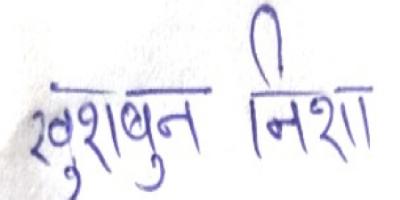 खुशबुन निशा